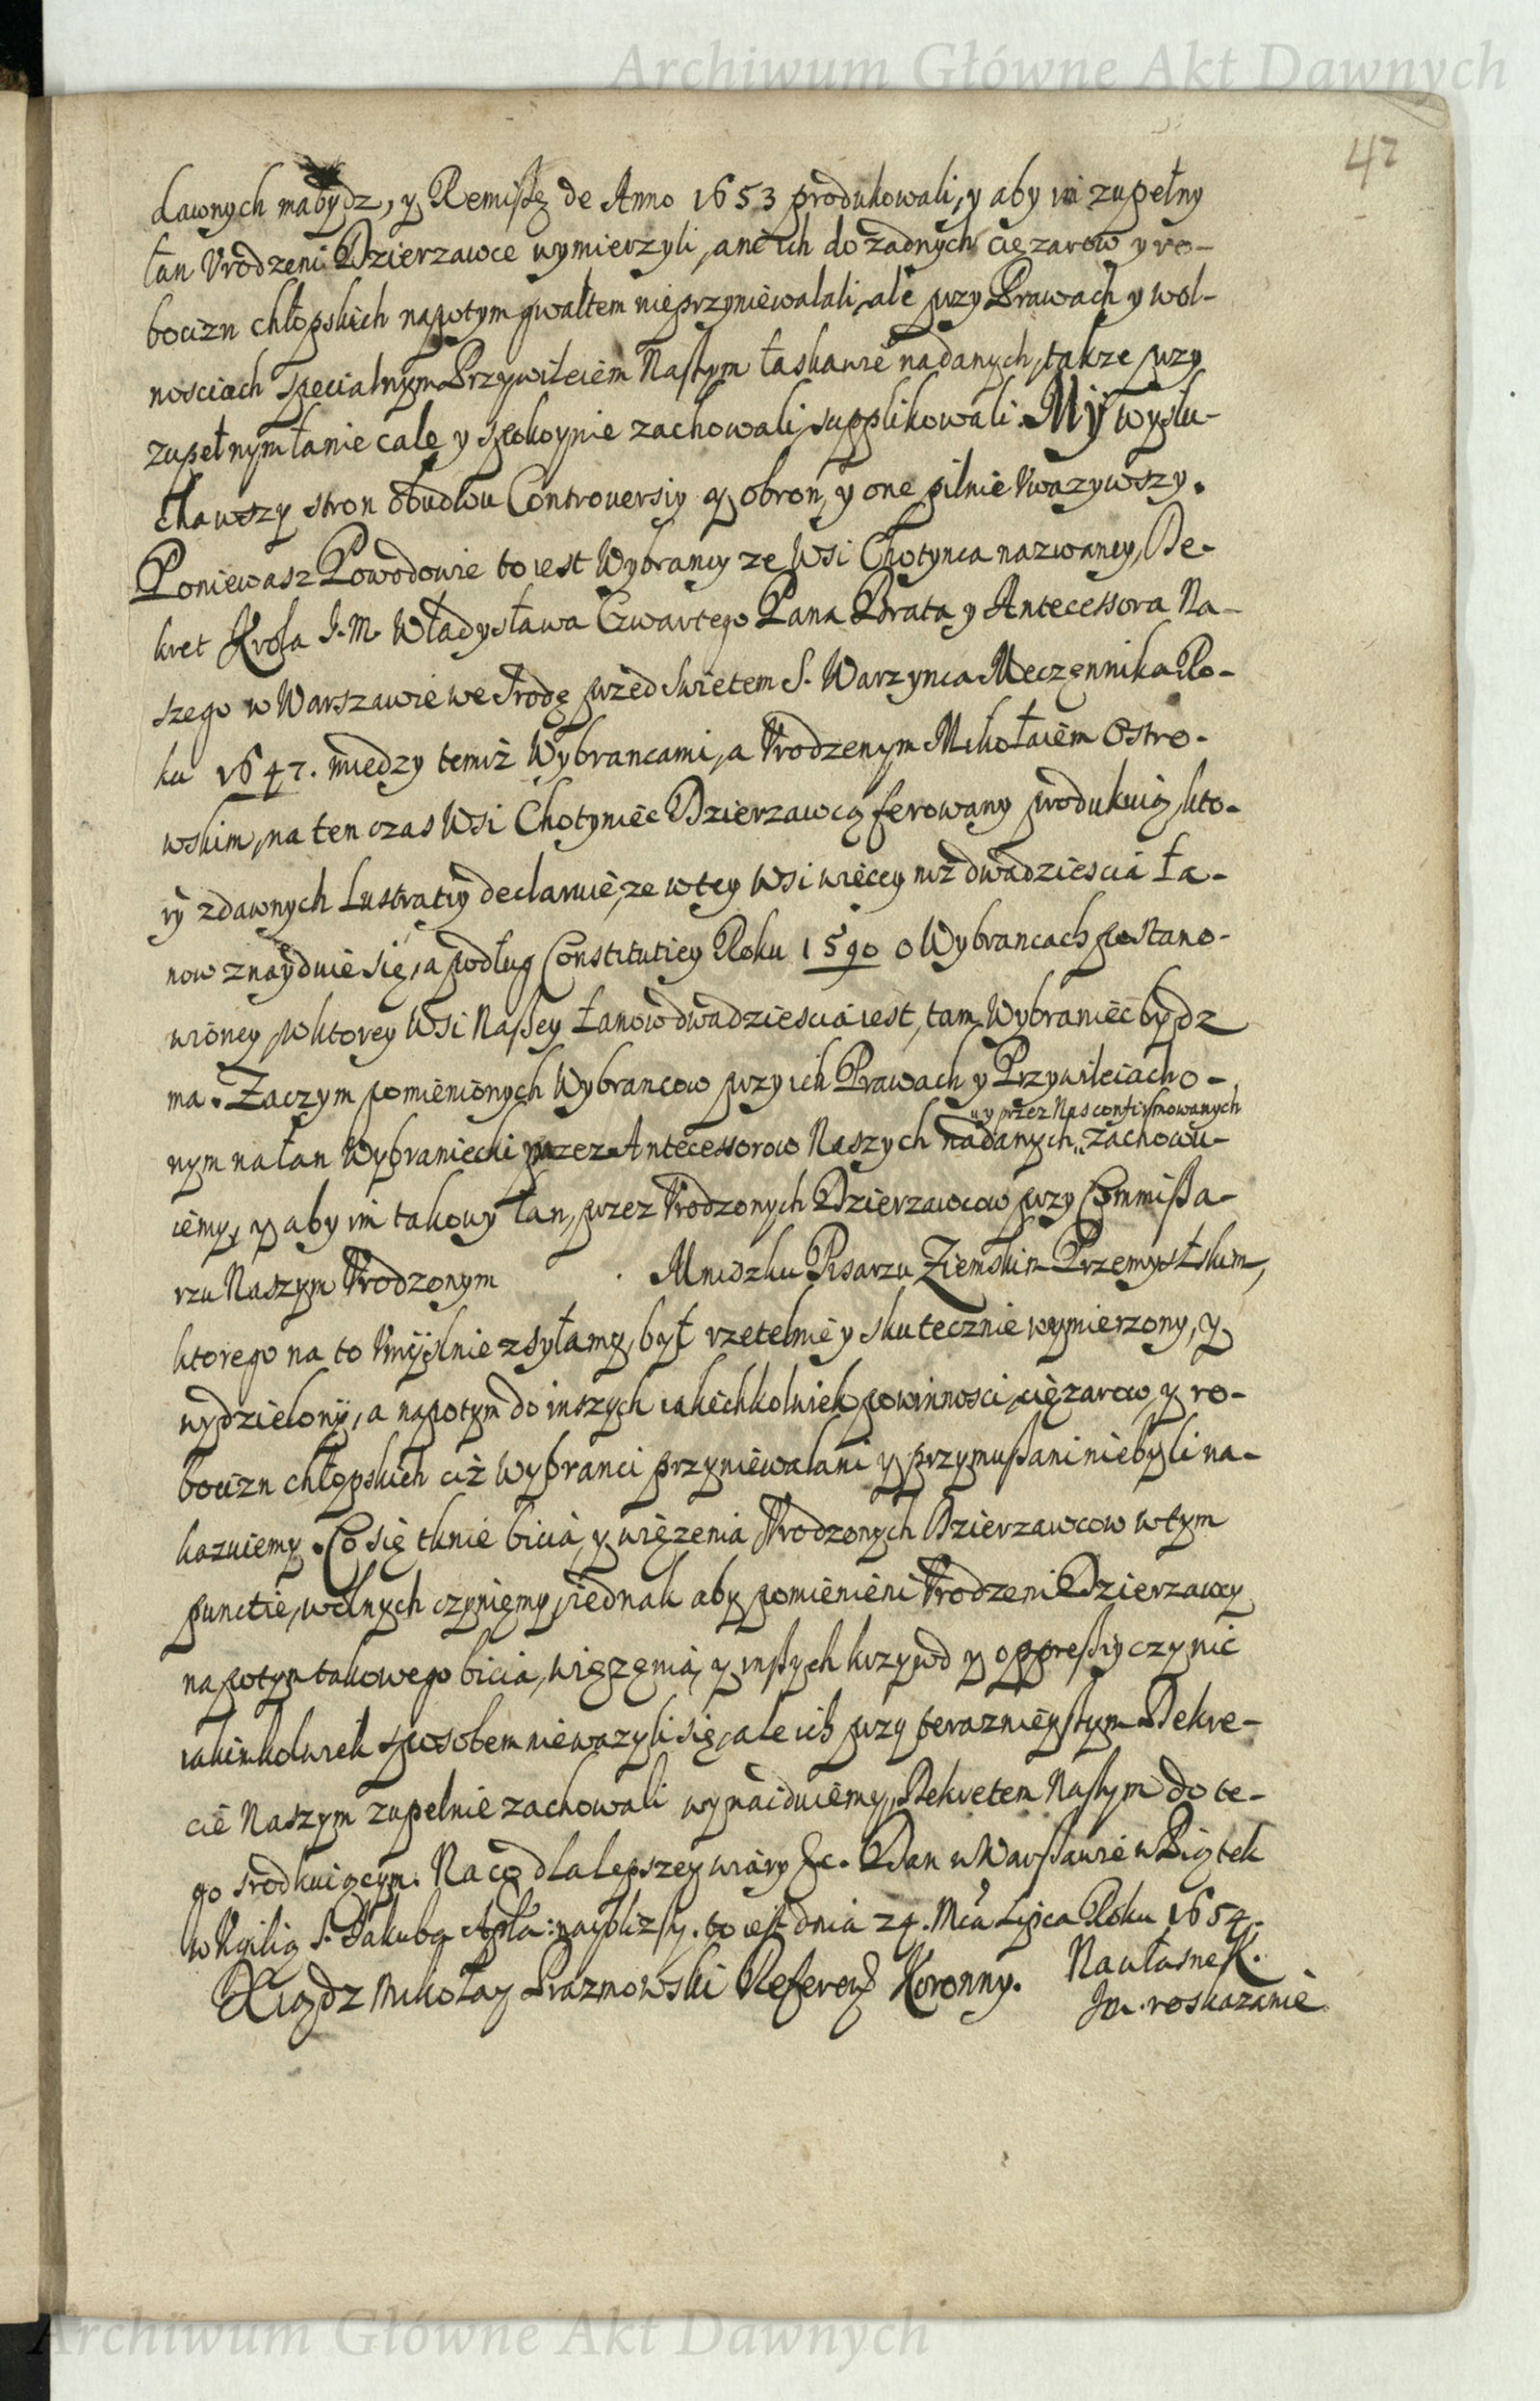 Archiwum Główne Akt Dawnych
47
dawnych ma bydz, y Remissę de Anno 1653 produkowali, y aby im zupełny
łan Vrodzeni Dzierzawce wymierzyli, ani ich do zadnych cięzarow y ro-
bocizn chłopskich napotym gwałtem nieprzyniewalali, ale przy Prawach y wol-
nosciach specialnym Przywileiem Naszym łaskawie nadanych, takze przy
zupełnym łanie cale y spokoynie zachowali, supplikowali. My wysłu-
chawszy stron obudwu Controuersiy y obron, y one pilnie Vwazywszy.
Poniewasz Powodowie to iest Wybrancy ze Wsi Chotynca nazwaney, De-
kret Krola J. M. Władysława Czwartego Pana Brata y Antecessora Na-
szego w Warszawie we Srodę przed Swietem S. Warzynca Męczęnnika Ro-
ku 1647. między temiż Wybrancami, a Vrodzenym Mikołaiem Ostro-
wskim, na ten czas Wsi Chotyniec Dzierzawcą ferowany produkuią, kto-
ry z dawnych Lustratiy declaruie, ze w tey Wsi więcey niż dwadziescia ła-
now znayduie się, a podług Constitutiey Roku 1590 o Wybrancach postano-
wioney, w ktorey Wsi Naszey Łanow dwadziescia iest, tam Wybraniec bydz
ma. Zaczym pomienionych Wybrancow przy ich Prawach y Przywileiach o-
y przez Nas confirmowanych
nym na łan Wybraniecki przez Antecessorow Naszych nadanych zachowu-
iemy, y aby im takowy łan, przez Vrodzonych Dzierzawcow przy Commissa-
rzu Naszym Vrodzonym Mniszku Pisarzu Ziemskim Przemyslskim,
ktorego na to Vmyslnie zsyłamy, był rzetelnie y skutecznie wymierzony, y
wydzielony, a napotym do inszych iakichkolwiek powinnosci, cięzarow y ro-
bocizn chłopskich ciż Wybranci przyniewalani y przymuszani niebyli na-
kazuiemy. Co się tknie bicia, y więzenia Vrodzonych Dzierzawcow w tym
punctie, wolnych czyniemy, iednak aby pomienieni Vrodzeni Dzierzawcy
napotym takowego bicia, więzęnia, y inszych krzywd y oppressiy czynic
iakimkolwiek sposobem niewazyli się, ale ich przy terazniejszym Dekre-
cie Naszym zupelnie zachowali wynaiduiemy, Dekretem Naszym do te-
go srodkuiącym. Na co dla lepszey wiary &c. Dan w Warszawie w Piątek
w Vigilią S. Jakuba Apła: nayblizszy. to iest dnia 24. Mca Lipca Roku 1654.
Xiądz Mikołay Prazmowski Referend Koronny. Na własne K.
Jm. roskazanie.
Archiwum Główne Akt Dawnych